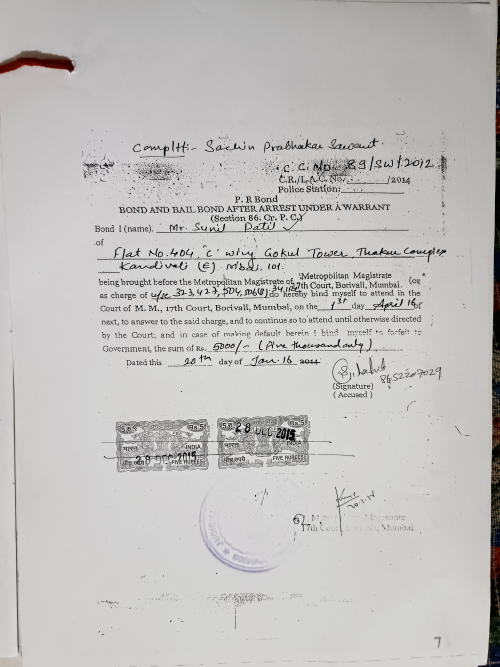 Complt:- Sachin Prabhakar Sawant.
C.C. No. 89/SW/2012
C.R./L.A.C. No. /2014
Police Station:
P. R Bond
BOND AND BAIL BOND AFTER ARREST UNDER A WARRANT
(Section 86. Cr. P. C.)
Bond I (name). Mr. Sunil Patil
of
Flat No. 404, "C" wing Gokul Tower, Thakur Complex
Kandivali (E) Mbai. 101.
being brought before the Metropolitan Magistrate of Metropolitan Magistrate 17th Court, Borivali, Mumbai. (or
as charge of u/s 323, 427, 504, do hereby bind myself to attend in the
Court of M. M., 17th Court, Borivali, Mumbai, on the 1st day April 16 of
next, to answer to the said charge, and to continue so to attend until otherwise directed
by the Court; and in case of making default herein I bind myself to forfeit to
Government, the sum of Rs. 5000/- (Five thousand only)
Dated this 20th day of Jan. 16 2014
8652207029
(Signature)
( Accused )
रु.5 Rs.5 रु.5 Rs.5
28 DEC 2015
भारत INDIA भारत INDIA
28 DEC 2015
पाँच रुपये FIVE RUPEES पाँच रुपये FIVE RUPEES
Magistrate
17th Court, Mumbai
7